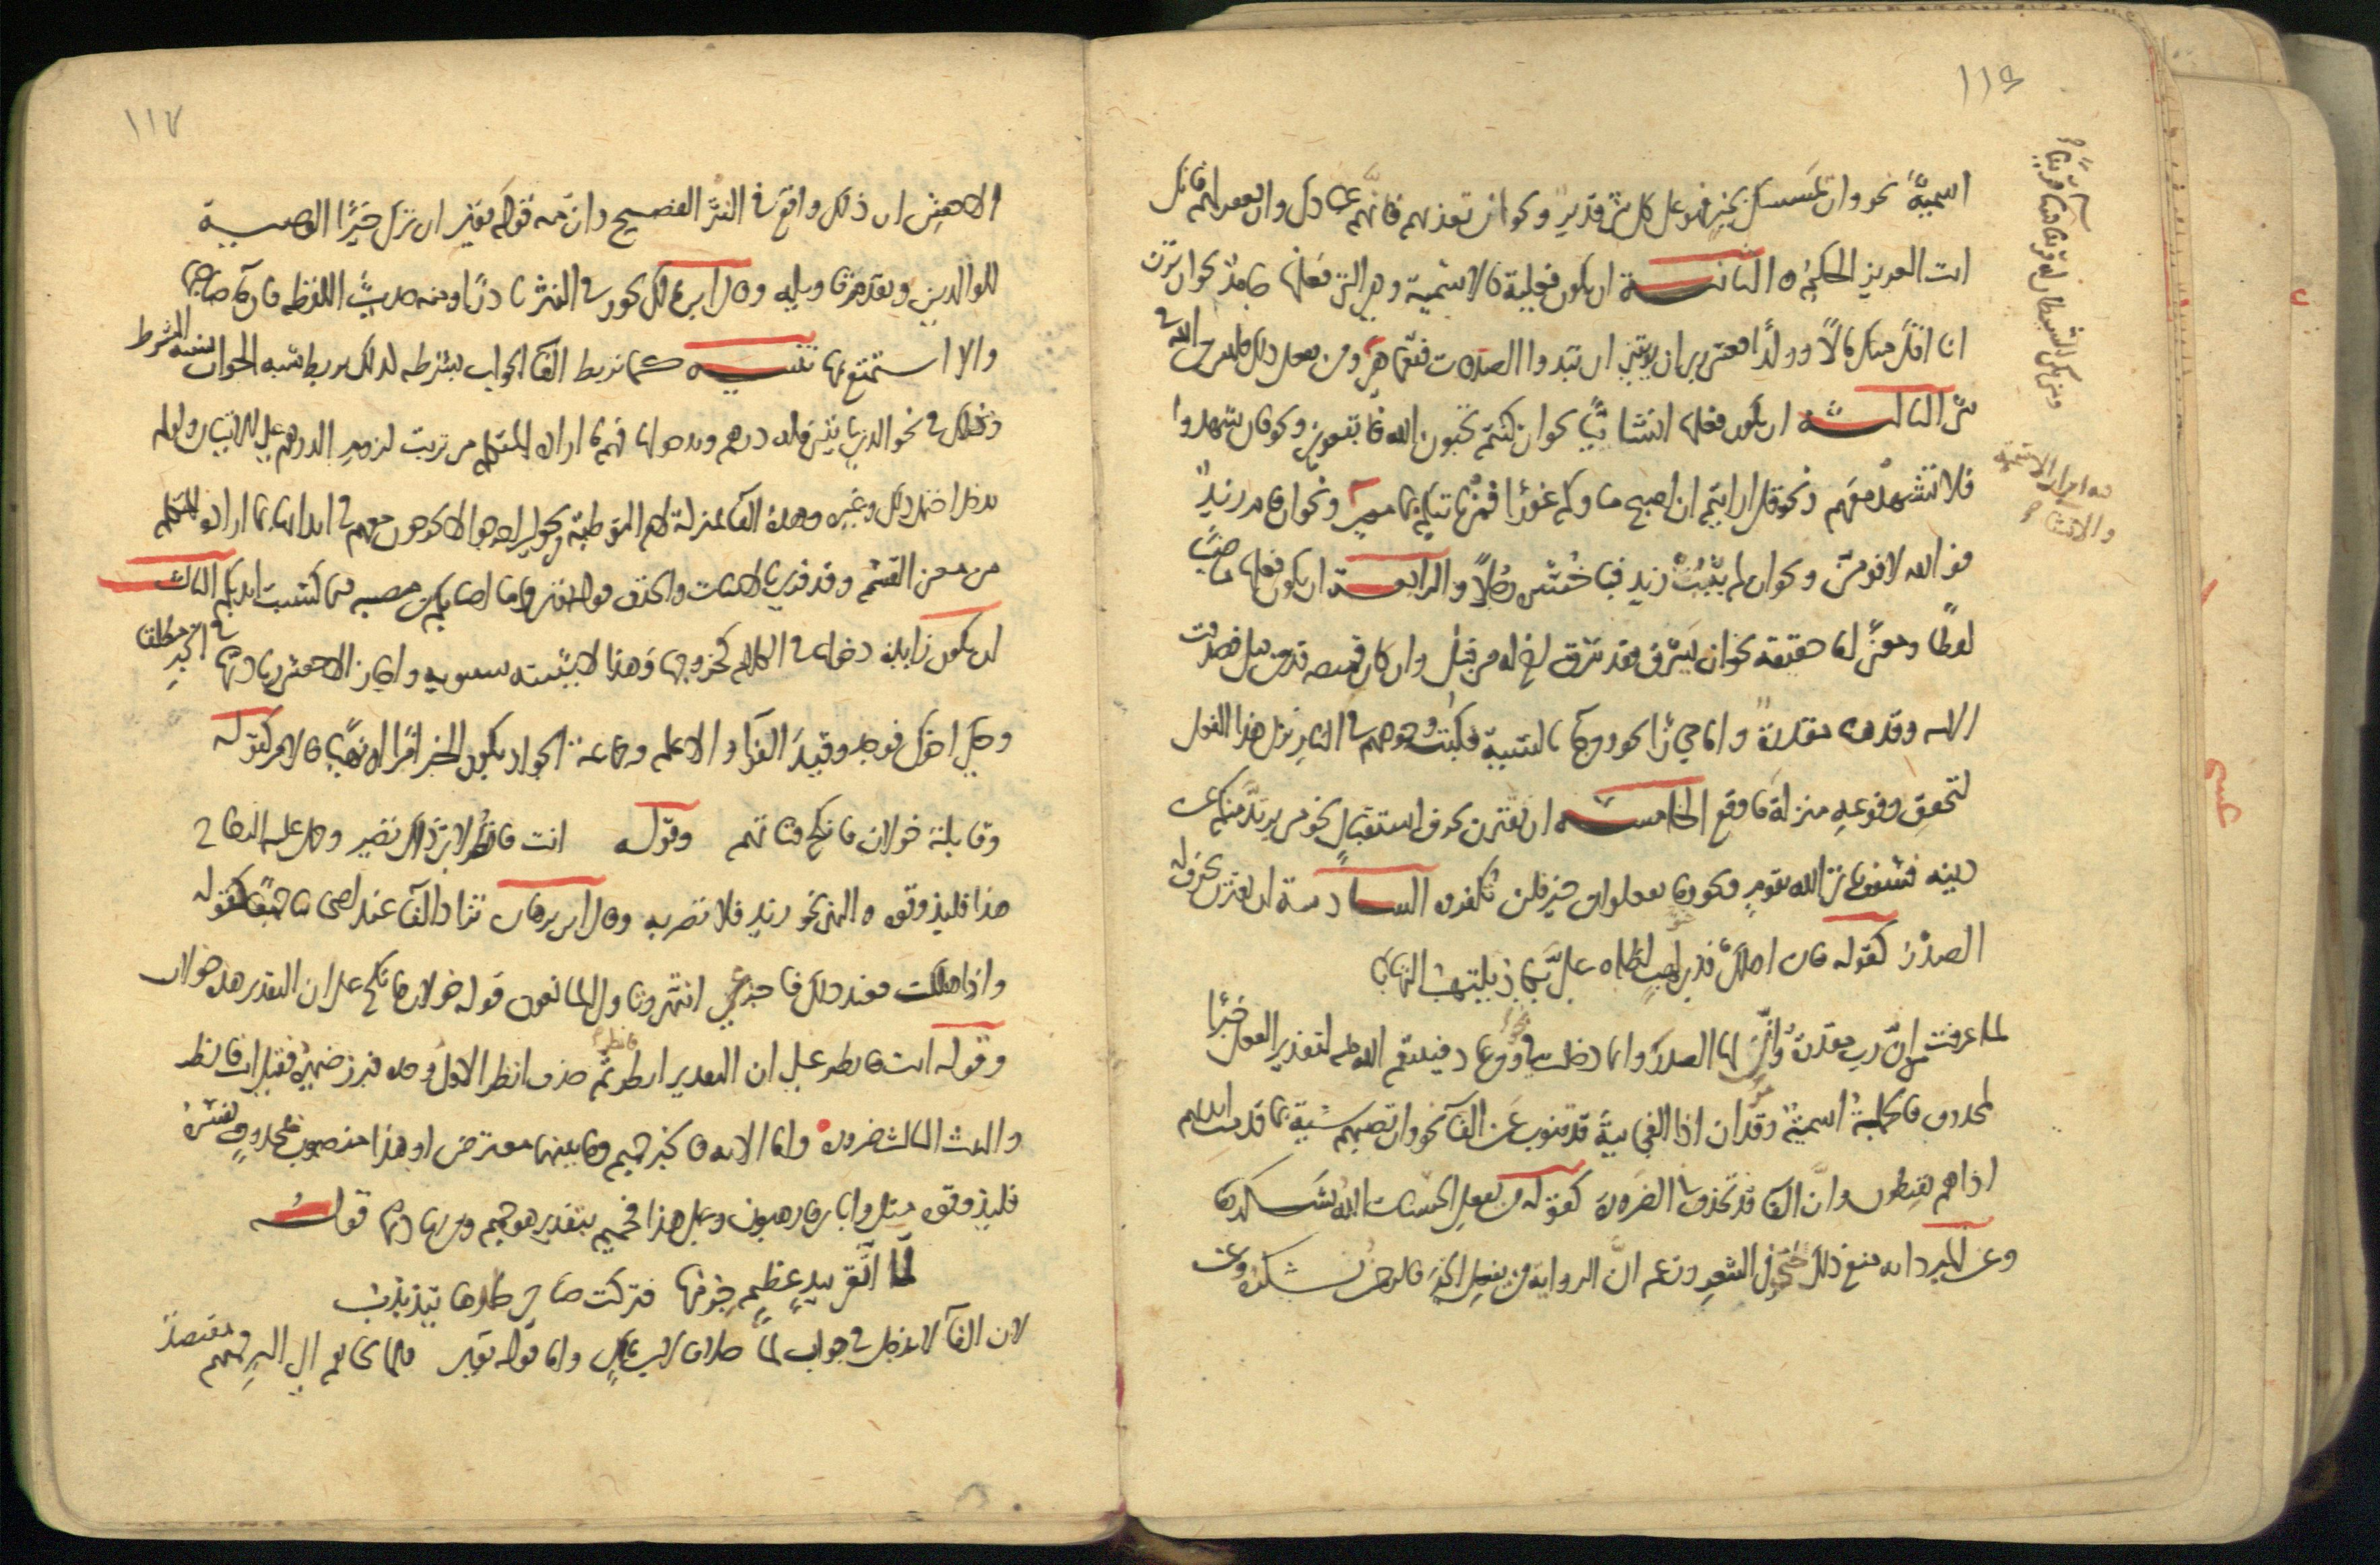 ١١٦
اسمية نحو وان يمسسك بخير فهو على كل شئ قدير ونحو ان تعذبهم فانهم عبادك وان تغفر لهم فانك
انت العزيز الحكيم الثانية ان يكون فعلية كالاسمية وهي التي فعلها جامد نحو ان ترن
انا اقل منك مالا وولدا فعسى ربي ان يؤتيني ان تبدوا الصدقات فنعما هي ومن يفعل ذلك فليس من الله في
شئ الثالثة ان يكون فعلها انشائيا نحو ان كنتم تحبون الله فاتبعوني ونحو فان شهدوا
فلا تشهد معهم ونحو قل ارايتم ان اصبح ماؤكم غورا فمن ياتيكم بما معين ونحو ان قام زيد
فو الله لاقومن ونحو ان لم يتب زيد فيا خسره رجلا والرابعة ان يكون فعلها ماضيا
لفظا ومعنى اما حقيقة نحو ان يسرق فقد سرق اخ له من قبل وان كان قميصه قد من قبل فصدقت
الاية وقد هنا مقدرة واما مجازا نحو ومن جاء بالسيئة فكبت وجوههم في النار نزل هذا الفعل
لتحقق وقوعه منزلة ما وقع الخامسة ان يقترن بحرف استقبال نحو من يرتد منكم عن
دينه فسوف ياتي الله بقوم ونحو وما يفعلوا من خير فلن تكفروه السادسة ان يقترن بحرف له
الصدر كقوله فان اهلك فذي لهب لظاه علي يكاد يلتهب التهابا
لما عرفت من ان رب مقدرة وان لها الصدر وانما دخلت في نحو ومن عاد فينتقم الله منه لتقدير الفعل خبرا
لمحذوف فالجملة اسمية وقد مر ان اذا الفجائية قد تنوب عن الفا نحو وان تصبهم سيئة بما قدمت ايديهم
اذا هم يقنطون وان الفا قد تحذف للضرورة كقوله من يفعل الحسنات الله يشكرها
وعن المبرد انه منع ذلك حتى في الشعر وزعم ان الرواية من يفعل الخير فالرحمن يشكره وعن
ومن يكن الشيطان له قرينا فساء قرينا
والانشا
١١٧
الاخفش ان ذلك واقع في النثر الفصيح وان منه قوله تعالى ان ترك خيرا الوصية
للوالدين وتقدم تاويله وقال ابن مالك يجوز في النثر نادرا ومنه حديث اللقطة فان جاء صاحبها
والا استمتع بها تنبيه كما تربط الفا الجواب بشرطه كذلك تربط شبه الجواب بشبه الشرط
وذلك في نحو الذي ياتيني فله درهم وبدخولها فهم ما اراده المتكلم من ترتب لزوم الدرهم على الاتيان ولو لم
تدخل احتمل ذلك وغيره وهذه الفا بمنزلة لام التوطئة في نحو لئن اخرجوا لا يخرجون معهم في ايذانها بما اراده المتكلم
من معنى القسم وقد قرئ بالاثبات والحذف قوله تعالى وما اصابكم من مصيبة فبما كسبت ايديكم الثالث
ان تكون زايدة دخولها في الكلام كخروجها وهذا لا يثبته سيبويه واجاز الاخفش زيادتها في الخبر مطلقا
وحكى اخوك فوجد وقيد الفراء والاعلم وجماعة الجواز بكون الخبر امرا او نهيا فالامر كقوله
وقايلة خولان فانكح فتاتهم وقوله انت فانظر لاي ذاك تصير وحمل عليه الزجاج
هذا فليذوقوه والنهي نحو زيد فلا تضربه وقال ابن برهان تزاد الفا عند اصحابنا جميعا كقوله
واذا هلكت فعند ذلك فاجزعي انتهى وتاول المانعون قوله خولان فانكح على ان التقدير هذه خولان
وقوله انت فانظر على ان التقدير انظر فانظر ثم حذف انظر الاول وحده فبرز ضميره فقيل انت فانظر
والبيت الثالث ضرورة واما الاية فالخبر حميم وما بينهما معترض او هذا منصوب بمحذوف يفسره
فليذوقوه مثل واياي فارهبون وعلى هذا فحميم بتقدير هو حميم ومن زيادتها قوله
لما اتقى بيد عظيم جرمها فتركت ضاحي جلدها يتذبذب
لان الفا لا تدخل في جواب لما خلافا لابن مالك واما قوله تعالى فلما نجاهم الى البر فمنهم مقتصد